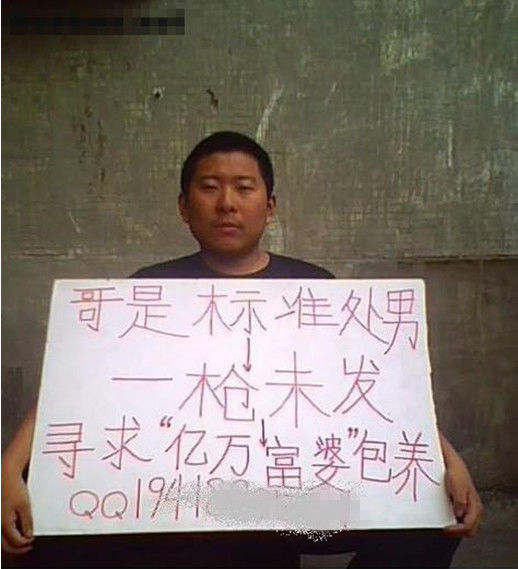 哥是标准处男
一枪未发
寻求“亿万富婆”包养
QQ1941